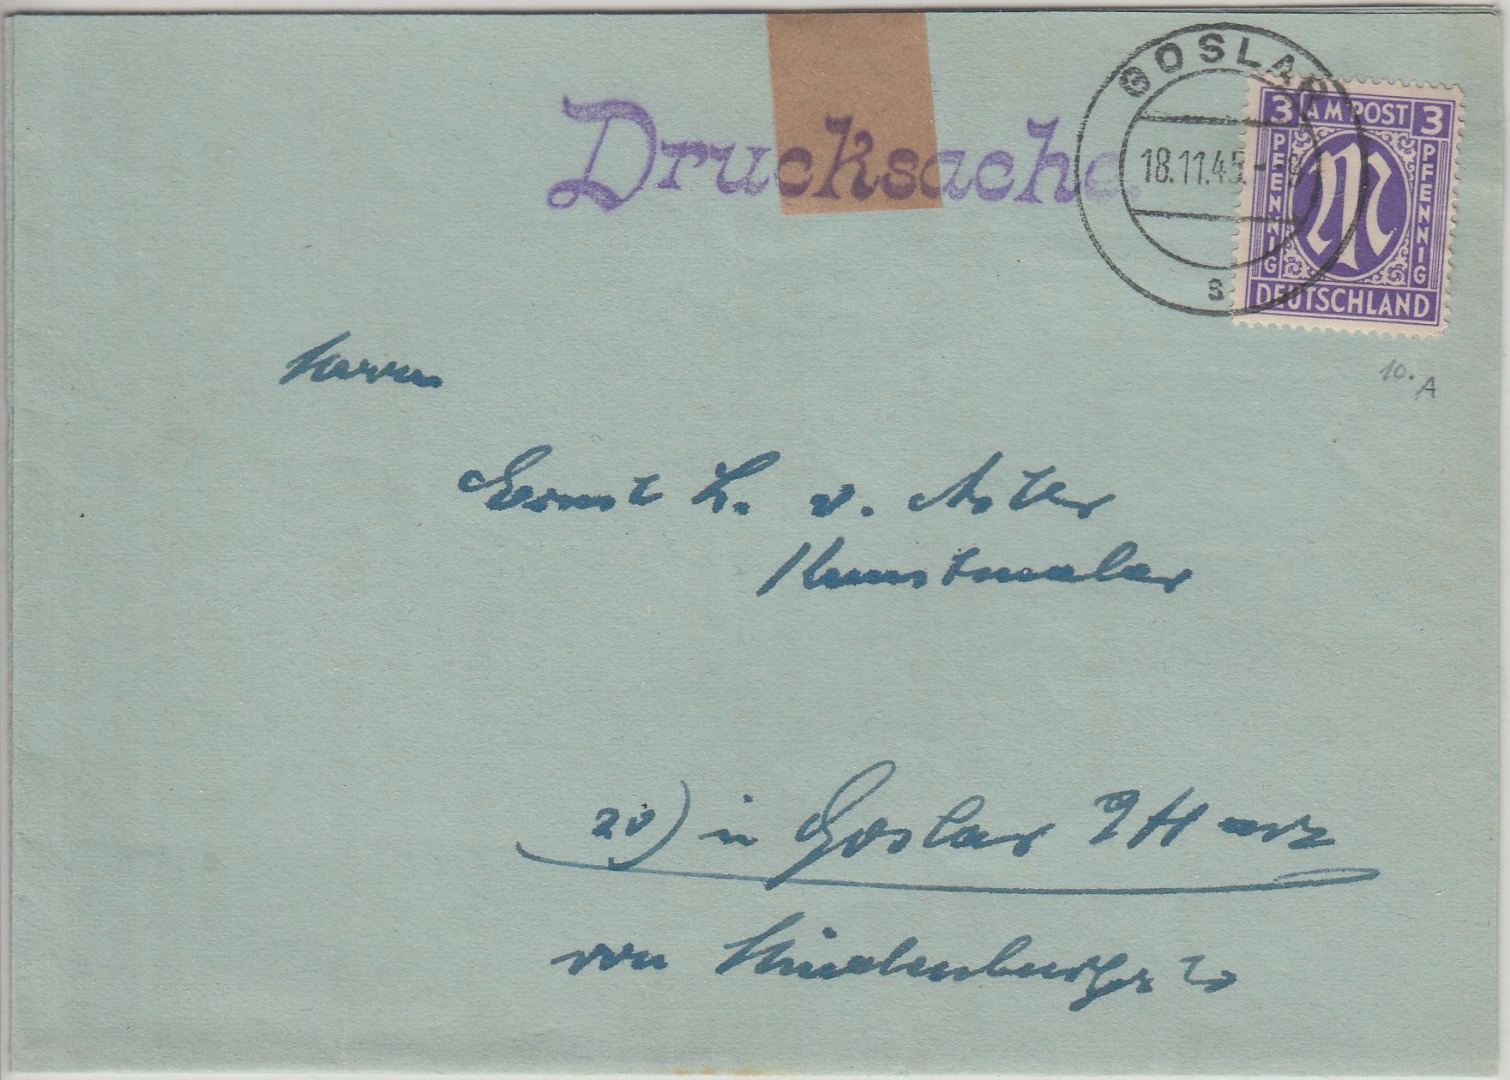 Drucksache.
GOSLAR
18.11.45.-8
s
3 AM POST 3
PFENNIG
PFENNIG
M
DEUTSCHLAND
10.
A
Herrn
Ernst L. v. Aster
Kunstmaler
20) in Goslar Harz
von Hindenburgstr